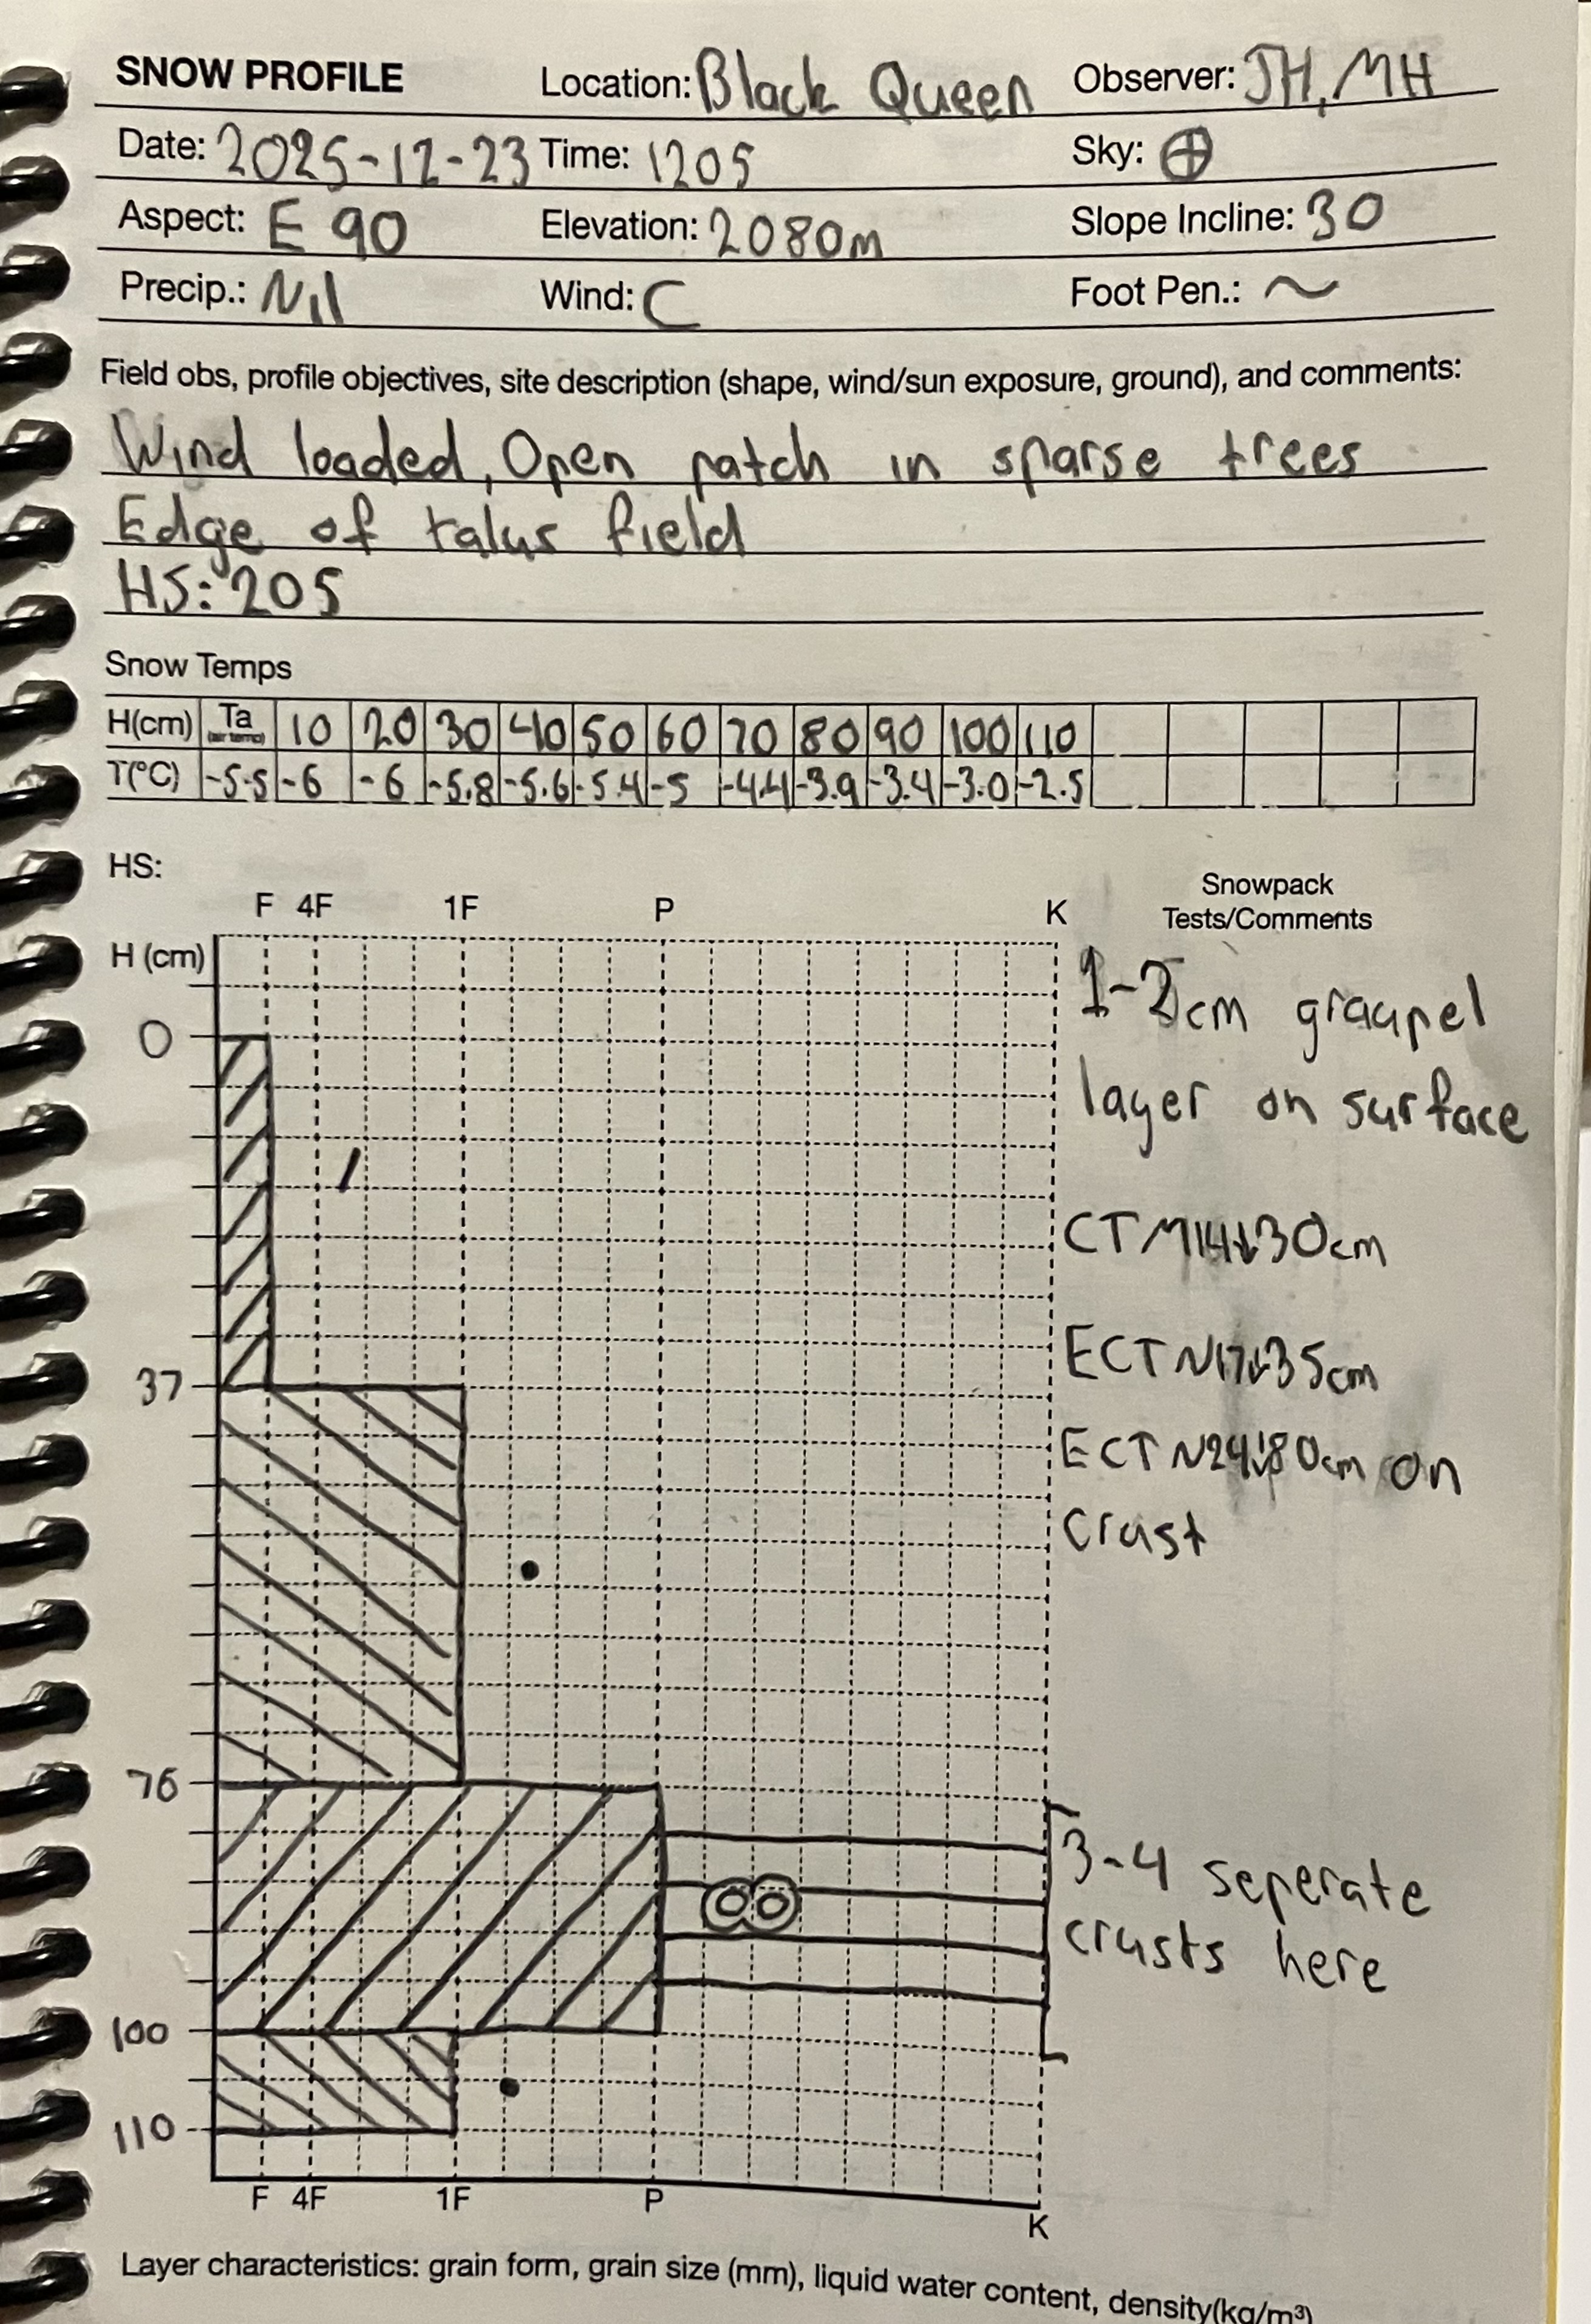 SNOW PROFILE Location: Black Queen Observer: JH, MH
Date: 2025-12-23 Time: 1205 Sky: ⊕
Aspect: E 90 Elevation: 2080m Slope Incline: 30
Precip.: Nil Wind: C Foot Pen.: ~
Field obs, profile objectives, site description (shape, wind/sun exposure, ground), and comments:
Wind loaded, Open patch in sparse trees
Edge of talus field
HS: 205
Snow Temps
H(cm) Ta (air temp) 10 20 30 40 50 60 70 80 90 100 110
T(°C) -5.5 -6 -6 -5.8 -5.6 -5.4 -5 -4.4 -3.9 -3.4 -3.0 -2.5
HS:
Snowpack
Tests/Comments
F 4F 1F P K
H (cm)
1-2cm graupel
0
layer on surface
/
CTM14↓30cm
ECTN17↓35cm
37
ECTN24↓80cm on
crust
•
76
3-4 seperate
crusts here
100
•
110
F 4F 1F P K
Layer characteristics: grain form, grain size (mm), liquid water content, density(kg/m³)